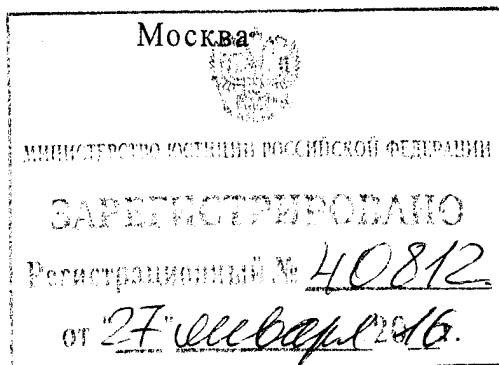 Москва
МИНИСТЕРСТВО ЮСТИЦИИ РОССИЙСКОЙ ФЕДЕРАЦИИ
ЗАРЕГИСТРИРОВАНО
Регистрационный № 40812.
от "27" января 2016.